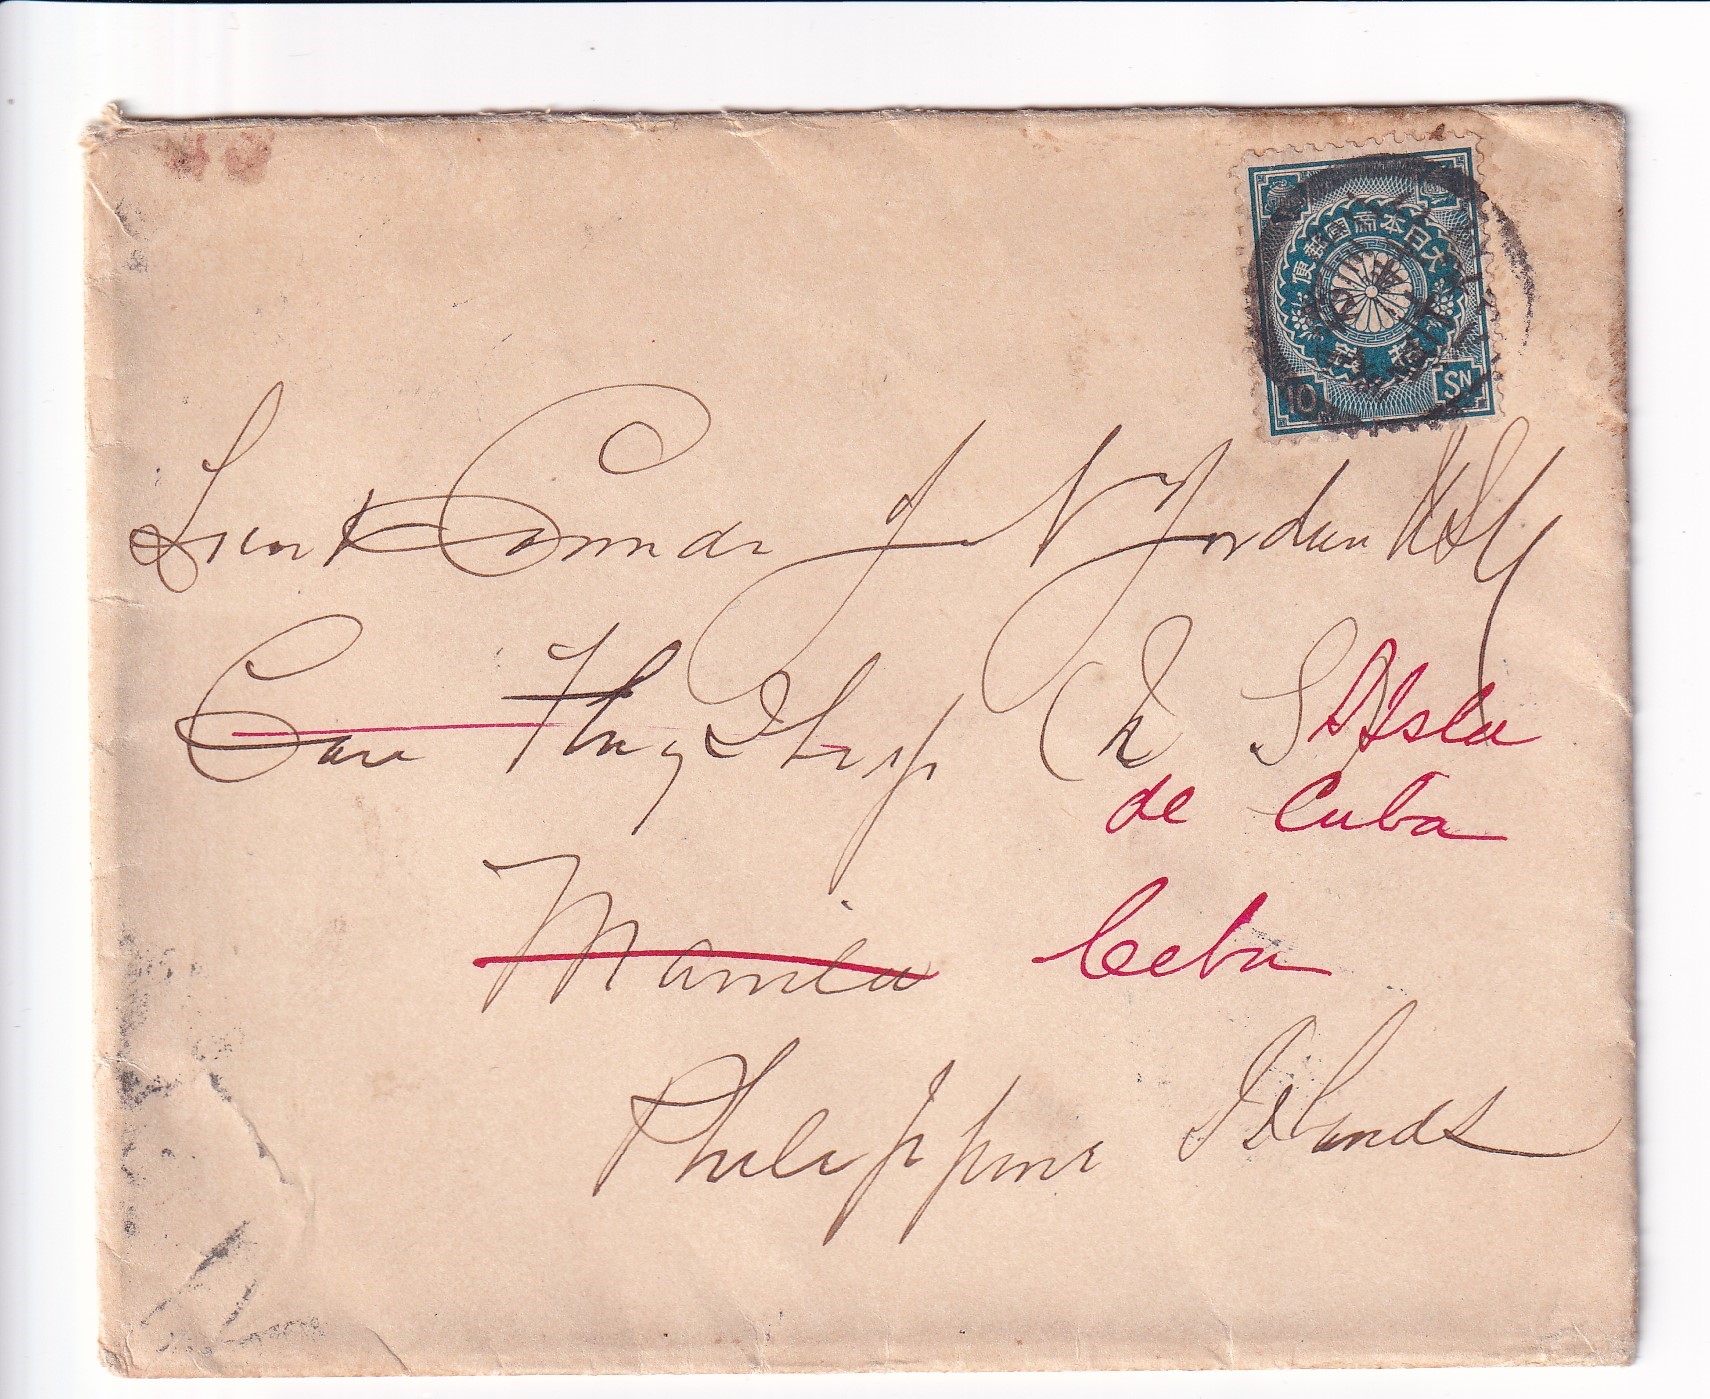 大日本帝國郵便
拾錢
10 SN
Lieut Comdr J N Jordan USN
Care Flag Ship (U S S Isla
de Cuba
Manila Cebu
Philippine Islands